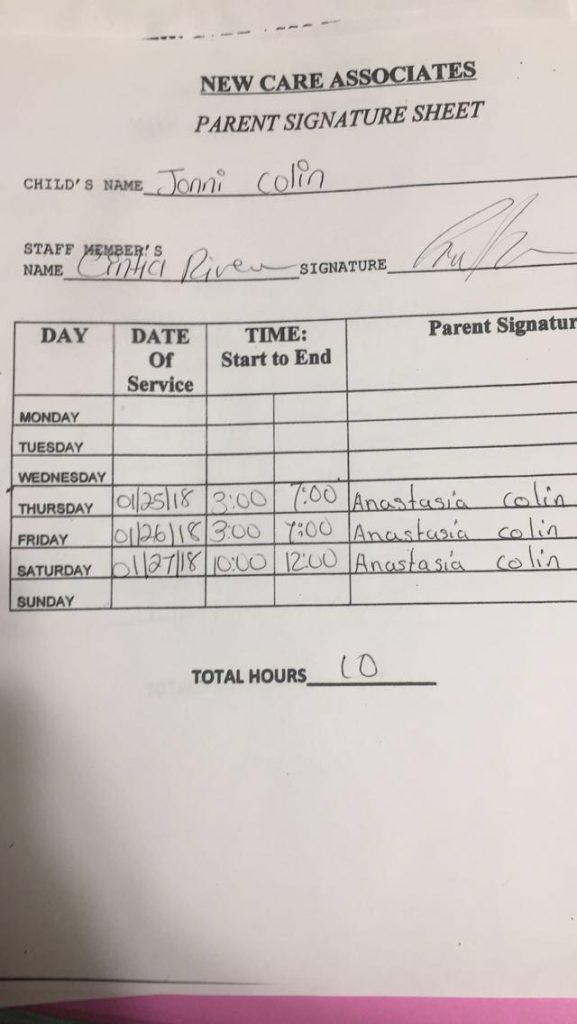 NEW CARE ASSOCIATES
PARENT SIGNATURE SHEET
CHILD'S NAME Jonni Colin
STAFF MEMBER'S
NAME Cintia SIGNATURE
DAY DATE Of Service TIME: Start to End Parent Signatur
MONDAY
TUESDAY
WEDNESDAY
THURSDAY 01/25/18 3:00 7:00 Anastasia Colin
FRIDAY 01/26/18 3:00 7:00 Anastasia Colin
SATURDAY 01/27/18 10:00 12:00 Anastasia Colin
SUNDAY
TOTAL HOURS 10